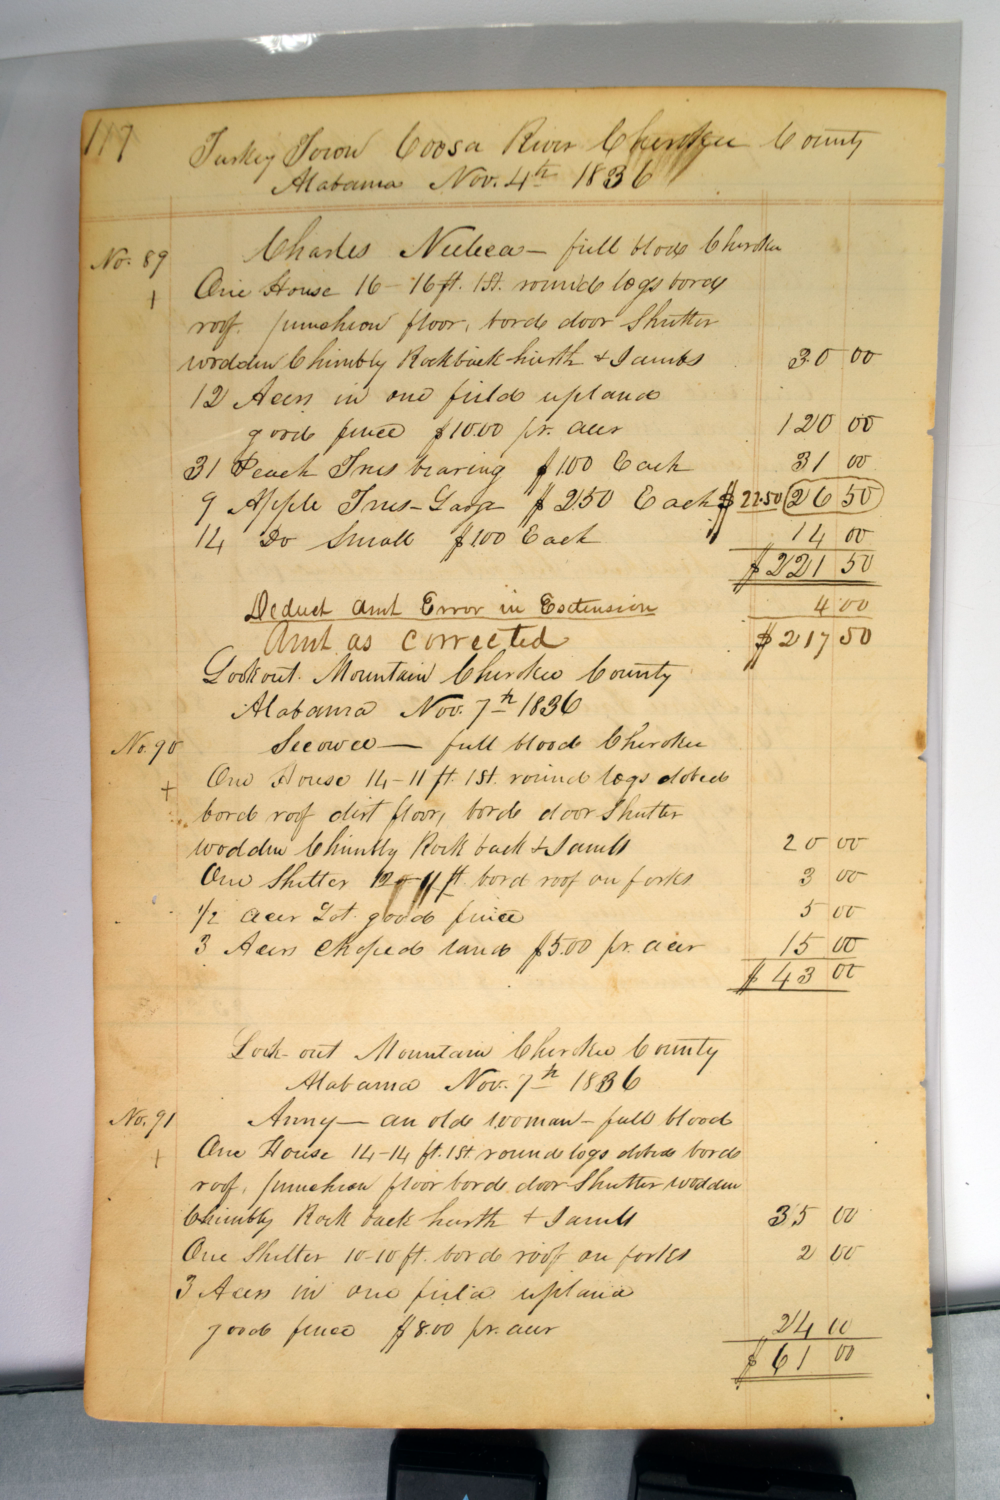 117
Turkey Town Coosa River Cherokee County
Alabama Nov. 4th 1836
No. 89 Charles — full blood Cherokee
One House 16-16 ft. 1St. round logs bord
roof. puncheon floor, bord door Shutter
wodden Chimbly Rockback hearth & Jambs 30 00
12 Acers in one field upland
good fence $10.00 pr. acer 120 00
31 Peach Trees bearing $1.00 Each 31 00
9 Apple Trees - Large $2.50 Each $22.50 26 50
14 Do Small $1.00 Each 14 00
$221 50
Deduct amt Error in Extension 4 00
Amt as corrected $217 50
Lookout Mountain Cherokee County
Alabama Nov. 7th 1836
No. 90 Secowee — full blood Cherokee
One House 14-11 ft. 1St. round logs dobed
bord roof dirt floor, bord door Shutter
wodden Chimbly Rock back & Jambs 20 00
One Shelter 12-11 ft bord roof on forks 3 00
1/2 acer Lot good fence 5 00
3 Acers Choped land $5.00 pr. acer 15 00
$43 00
Look-out Mountain Cherokee County
Alabama Nov. 7th 1836
No. 91 Anny — an old woman - full blood
One House 14-14 ft. 1St round logs dobed bord
roof, puncheon floor bord door Shutter wodden
Chimbly Rock back hearth & Jambs 35 00
One Shelter 10-10 ft. bord roof on forks 2 00
3 Acers in one field upland
good fence $8.00 pr. acer 24 00
$61 00